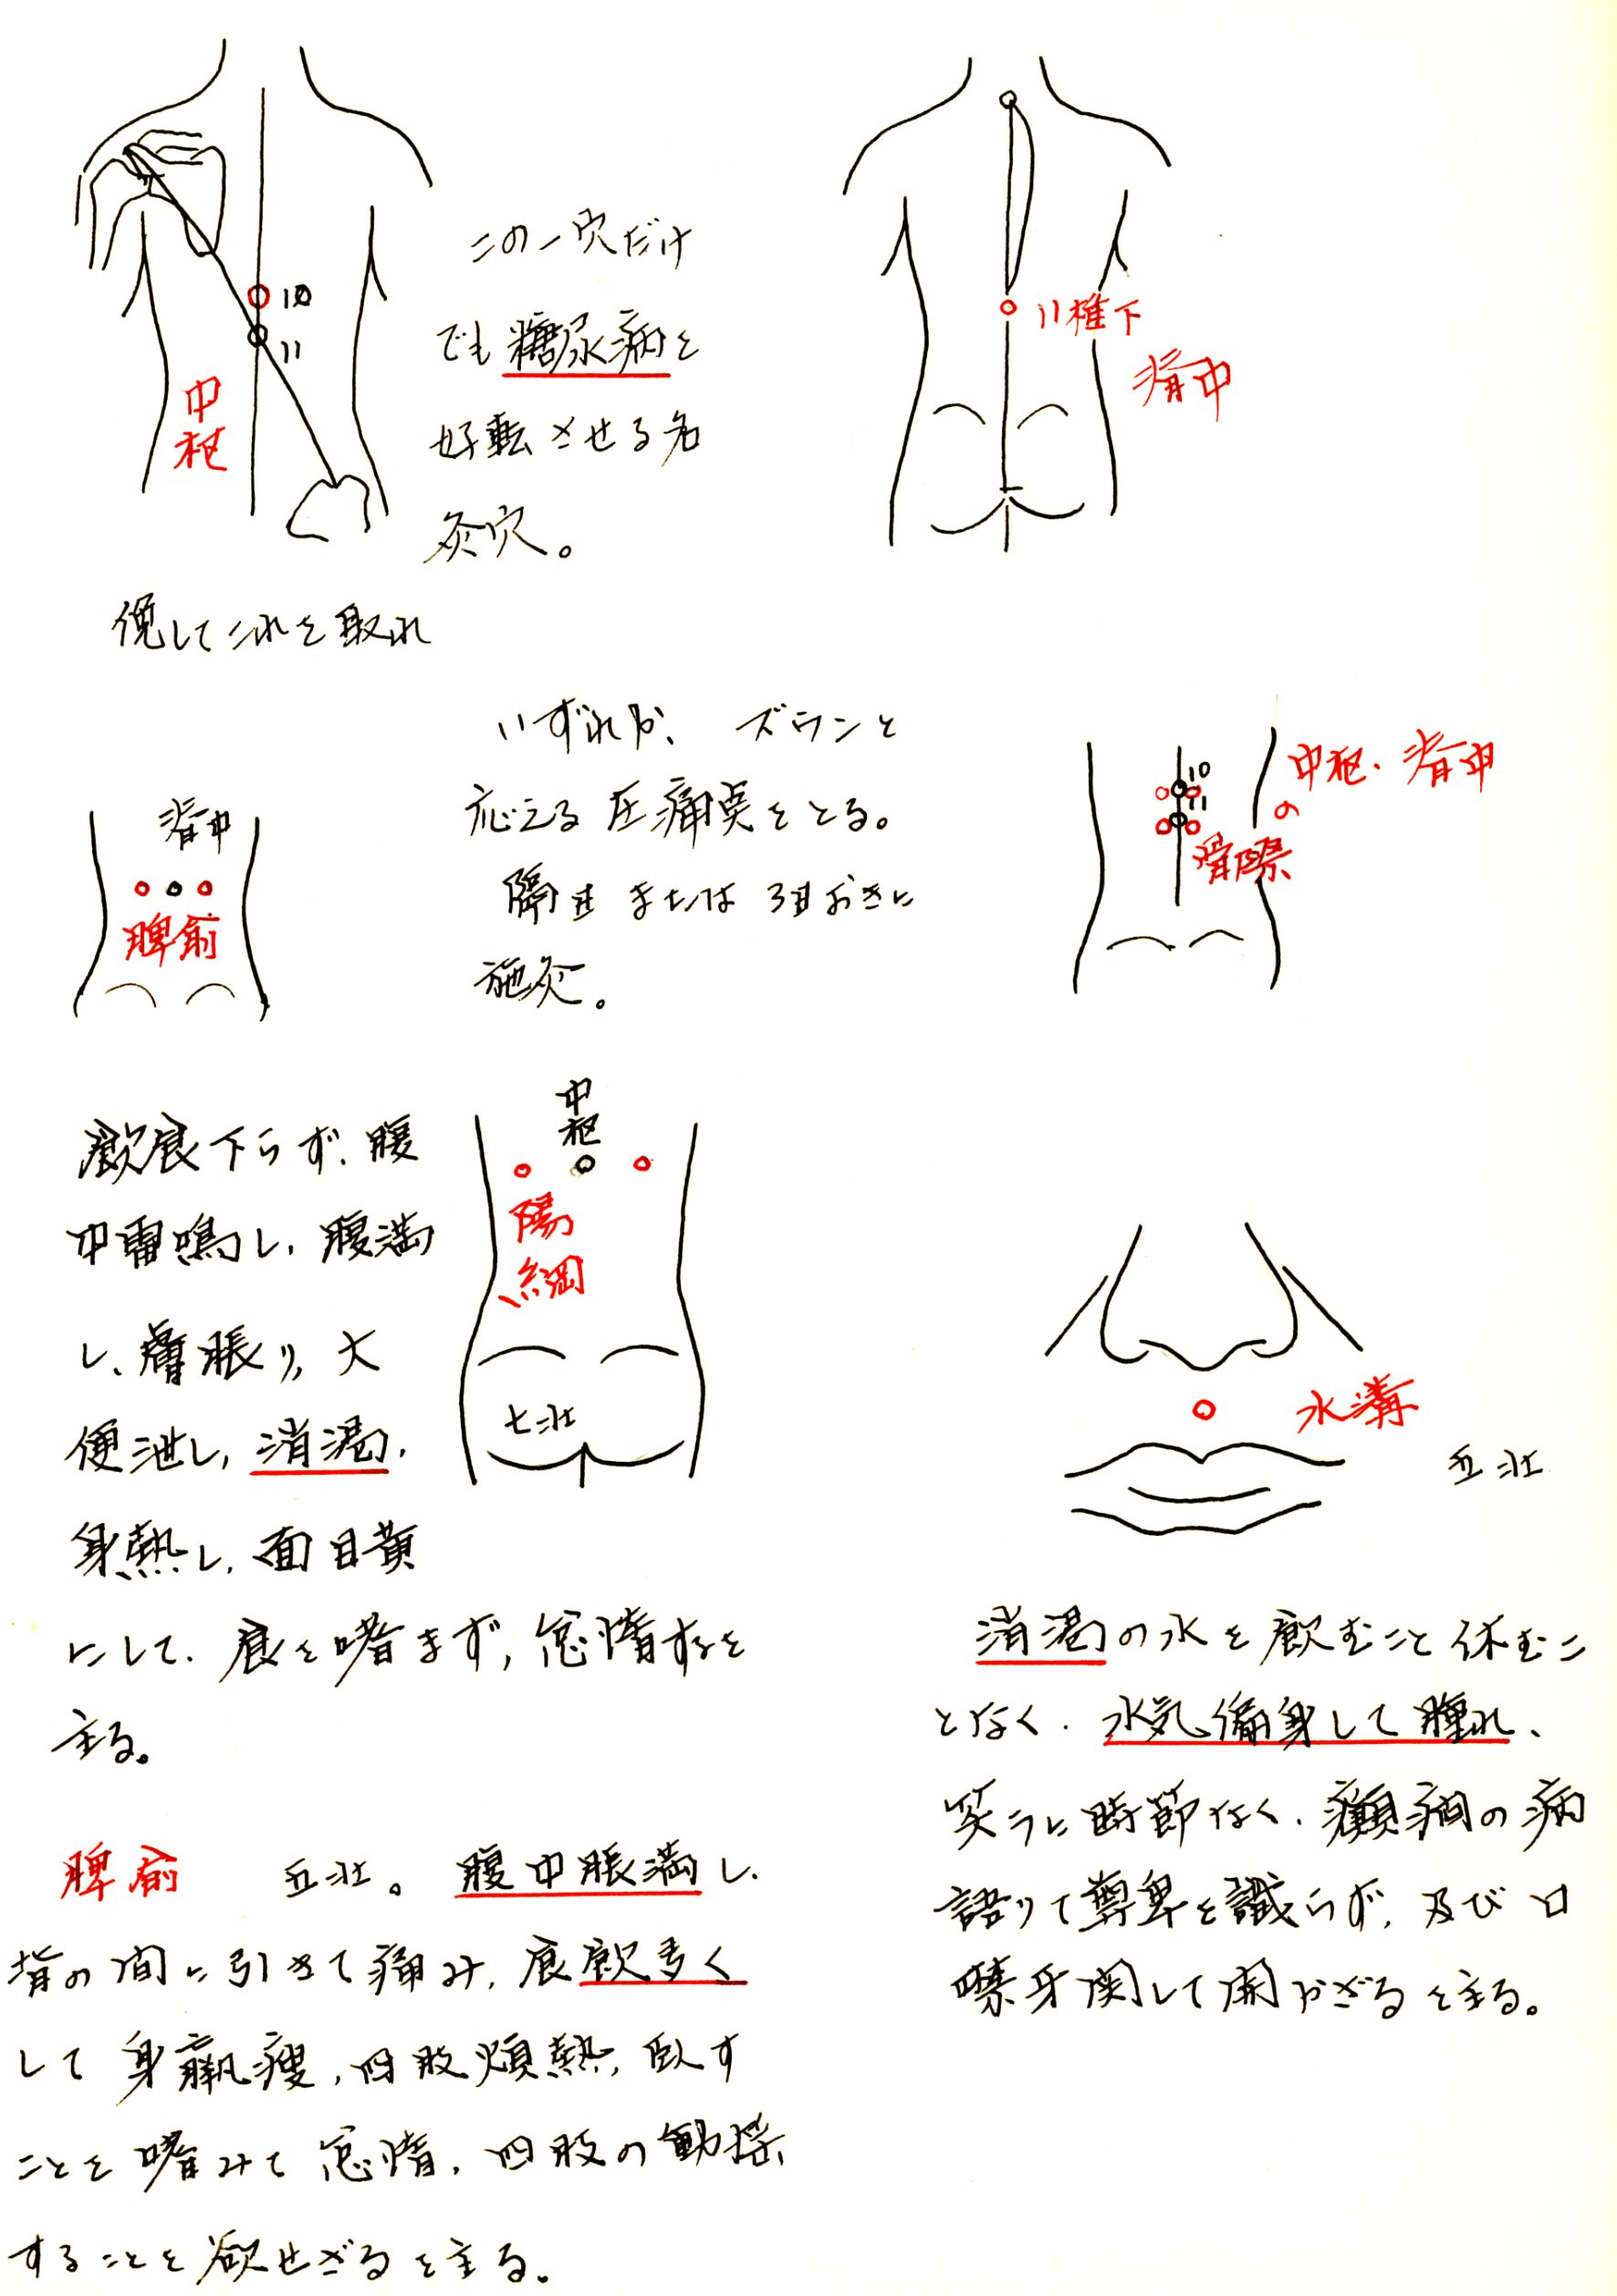 10
11
中
枢
この一穴だけ
でも糖尿病を
好転させる名
灸穴。
俛してこれを取れ
11椎下
脊中
いずれか、ズウンと
応える圧痛点をとる。
隔日または3日おきに
施灸。
脊中
脾兪
10
11
中枢、脊中
の
骨際
中
枢
陽
綱
七壮
飲食下らず、腹
中雷鳴し、腹満
し、膚脹り、大
便泄し、消渇、
身熱し、面目黄
にして、食を嗜まず、怠惰するを
主る。
脾兪 五壮。腹中脹満し、
背の間に引きて痛み、食飲多く
して身羸痩、四肢煩熱、臥す
ことを嗜みて怠惰、四肢の動揺
することを欲せざるを主る。
水溝
五壮
消渇の水を飲むこと休むこ
となく、水気徧身して腫れ、
笑うに時節なく、癲癇の病
語りて尊卑を識らず、及び口
噤牙関して開かざるを主る。